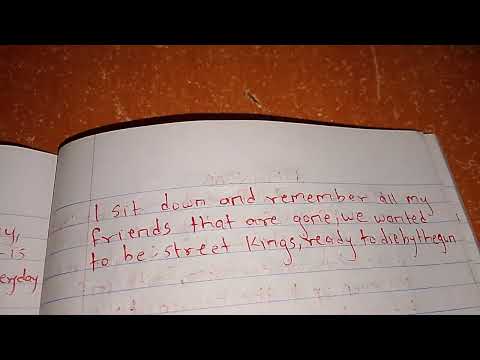 I sit down and remember all my
friends that are gone, we wanted
to be street kings, ready to die by the gun
is
everyday